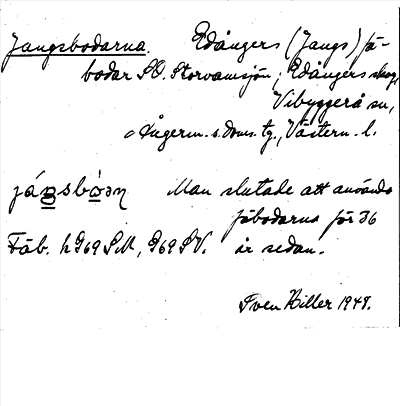 Jangsbodarna. Edångers (Jangs) fä-
bodar S.O. Storvamsjön, Edångers skog,
Vibyggerå sn,
Ångerm. s. doms. tg., Västern. l.
Man slutade att använda
fäbodarna för 36
Fäb. h G69 SM, G69 SV. år sedan.
Sven Hiller 1948.